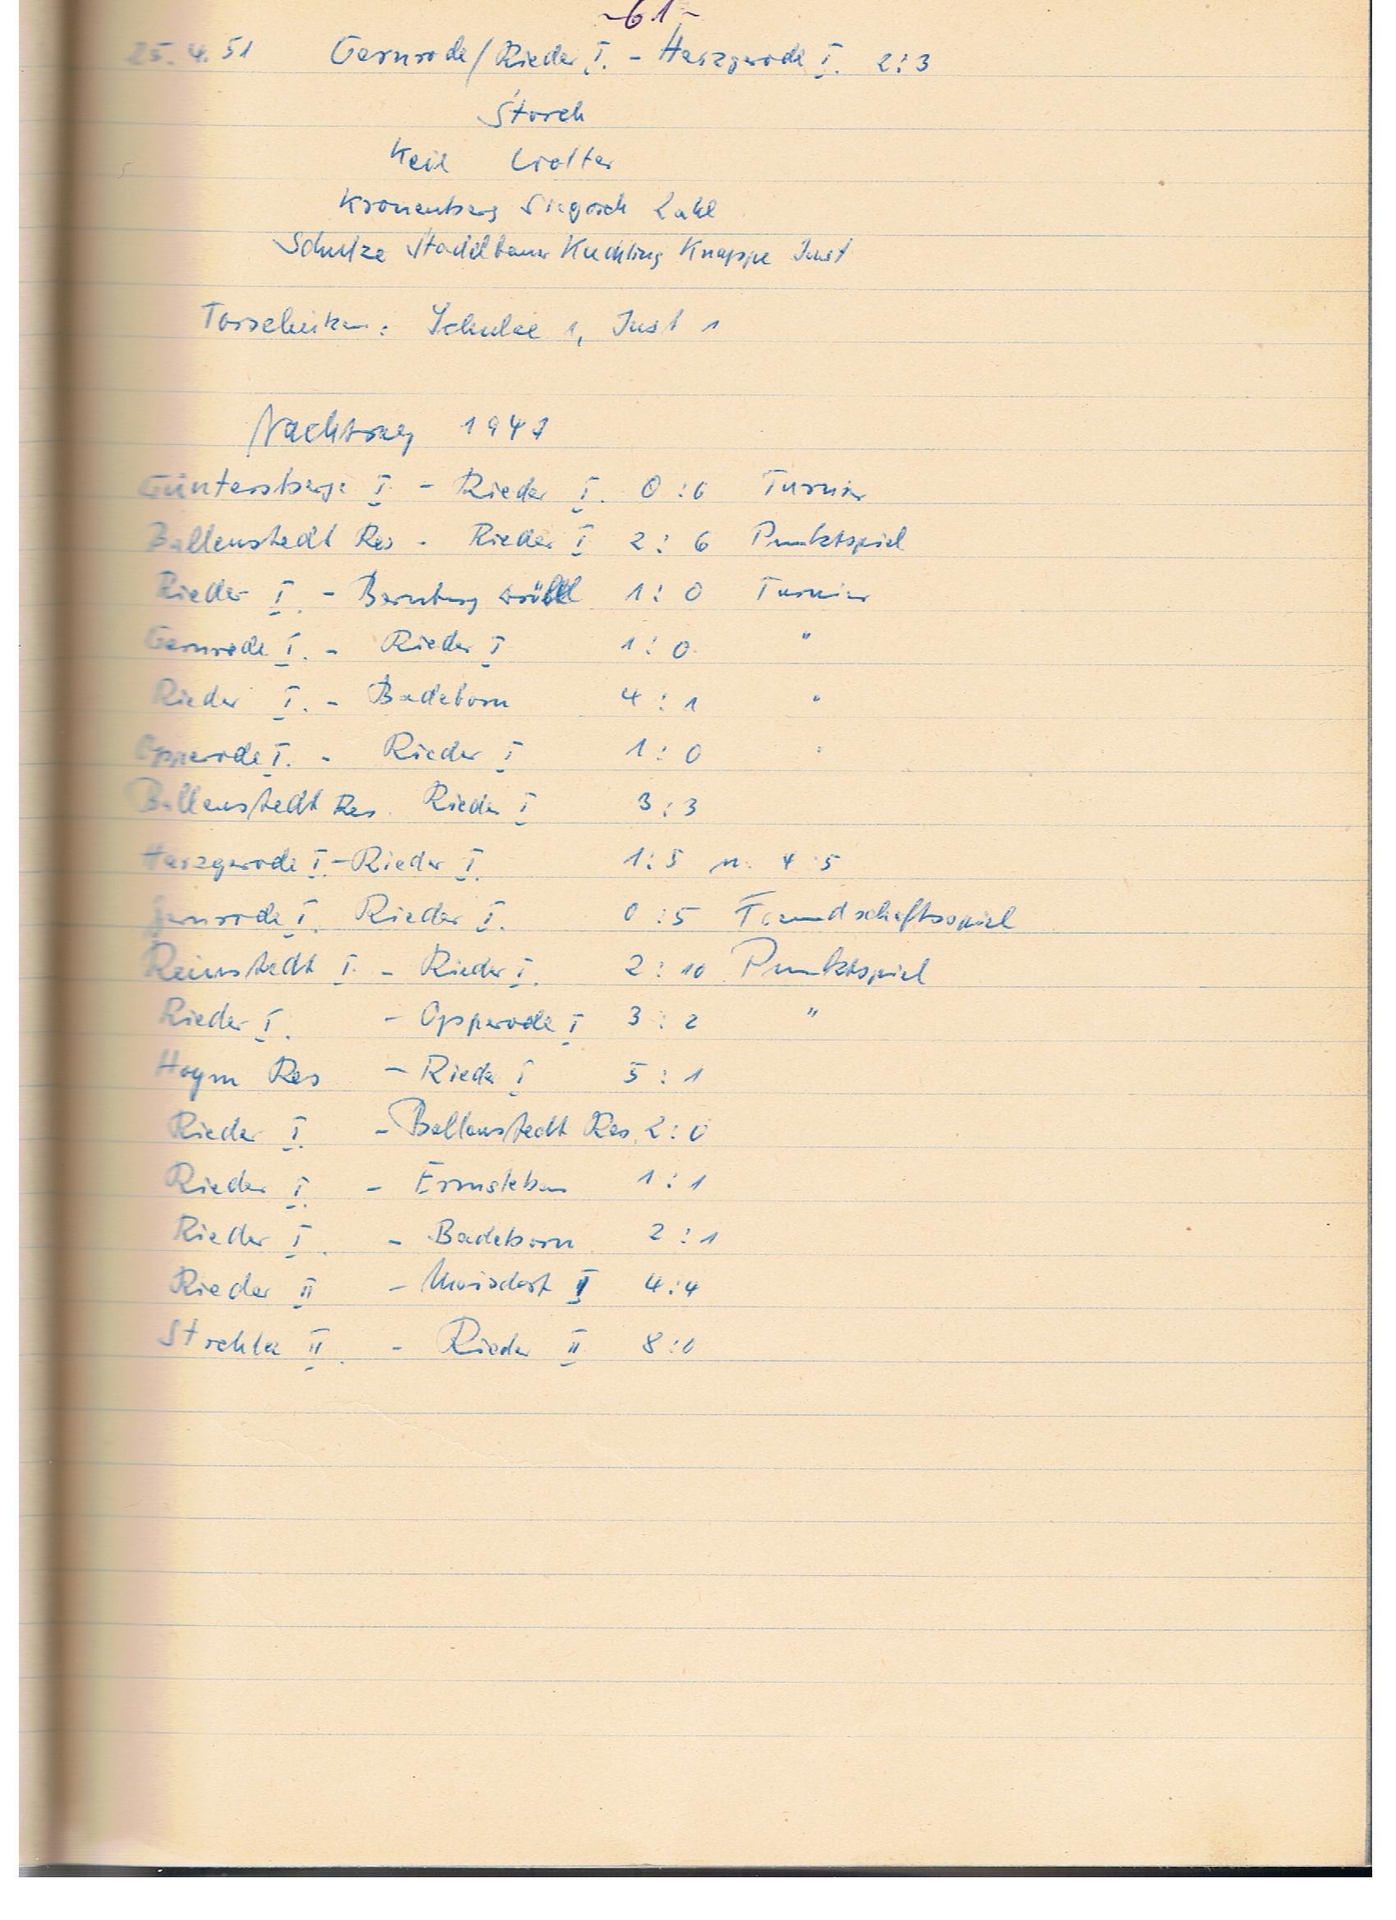 -61-
25.4.51 Gernrode/Rieder I. - Harzgerode I. 2:3
Storch
Keil Wolter
Kronenberg Siegosch Zahl
Schulze Stadelbauer Kuchling Knappe Just
Torschützen: Schulze 1, Just 1
Nachtrag 1947
Güntersberge I. - Rieder I. 0:6 Turnier
Ballenstedt Res - Rieder I 2:6 Punktspiel
Rieder I. - Bernburg 1:0 Turnier
Gernrode I. - Rieder I 1:0 "
Rieder I. - Badeborn 4:1 "
Opperode I. - Rieder I 1:0 "
Ballenstedt Res. Rieder I 3:3
Harzgerode I. - Rieder I. 1:5 n. 4:5
Gernrode I. Rieder I. 0:5 Freundschaftsspiel
Reinstedt I. - Rieder I. 2:10 Punktspiel
Rieder I. - Opperode I 3:2 "
Hoym Res - Rieder I 5:1
Rieder I. - Ballenstedt Res. 2:0
Rieder I. - Ermsleben 1:1
Rieder I. - Badeborn 2:1
Rieder II - Meisdorf I 4:4
II. - Rieder II 8:0